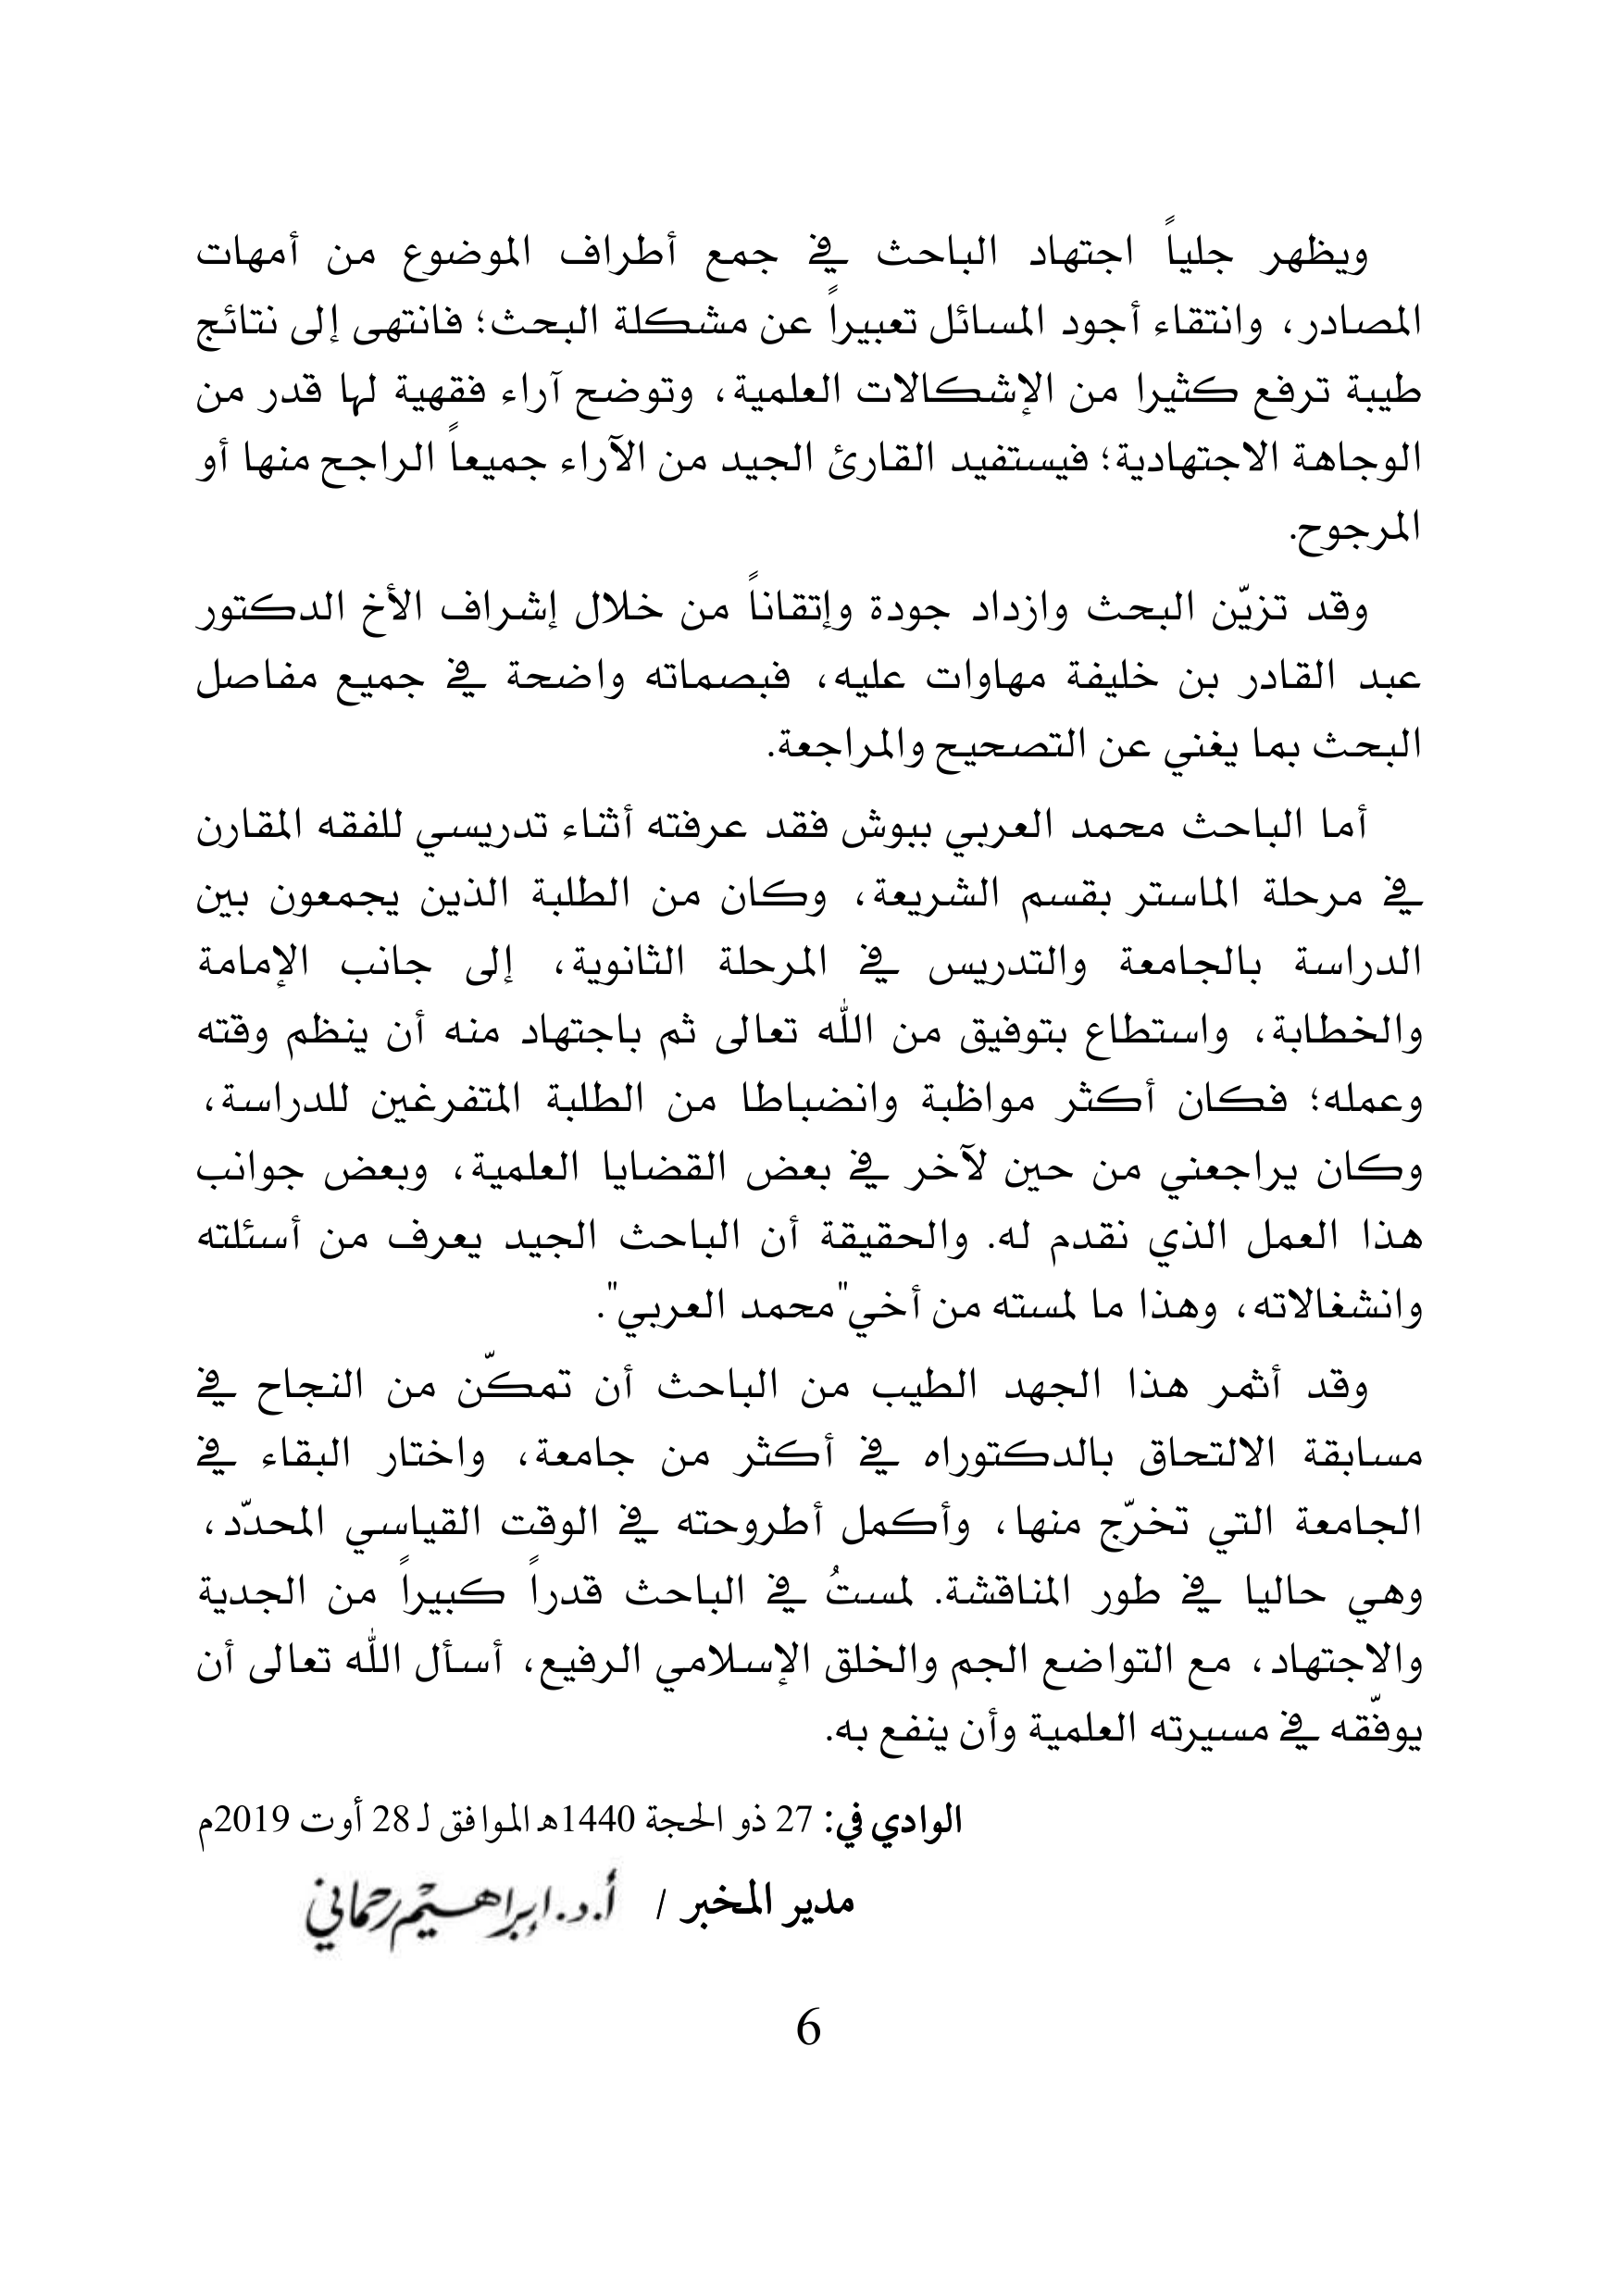 ويظهر جلياً اجتهاد الباحث في جمع أطراف الموضوع من أمهات
المصادر، وانتقاء أجود المسائل تعبيراً عن مشكلة البحث؛ فانتهى إلى نتائج
طيبة ترفع كثيرا من الإشكالات العلمية، وتوضح آراء فقهية لها قدر من
الوجاهة الاجتهادية؛ فيستفيد القارئ الجيد من الآراء جميعاً الراجح منها أو
المرجوح.
وقد تزيّن البحث وازداد جودة وإتقاناً من خلال إشراف الأخ الدكتور
عبد القادر بن خليفة مهاوات عليه، فبصماته واضحة في جميع مفاصل
البحث بما يغني عن التصحيح والمراجعة.
أما الباحث محمد العربي ببوش فقد عرفته أثناء تدريسي للفقه المقارن
في مرحلة الماستر بقسم الشريعة، وكان من الطلبة الذين يجمعون بين
الدراسة بالجامعة والتدريس في المرحلة الثانوية، إلى جانب الإمامة
والخطابة، واستطاع بتوفيق من الله تعالى ثم باجتهاد منه أن ينظم وقته
وعمله؛ فكان أكثر مواظبة وانضباطا من الطلبة المتفرغين للدراسة،
وكان يراجعني من حين لآخر في بعض القضايا العلمية، وبعض جوانب
هذا العمل الذي نقدم له. والحقيقة أن الباحث الجيد يعرف من أسئلته
وانشغالاته، وهذا ما لمسته من أخي"محمد العربي".
وقد أثمر هذا الجهد الطيب من الباحث أن تمكّن من النجاح في
مسابقة الالتحاق بالدكتوراه في أكثر من جامعة، واختار البقاء في
الجامعة التي تخرّج منها، وأكمل أطروحته في الوقت القياسي المحدّد،
وهي حاليا في طور المناقشة. لمستُ في الباحث قدراً كبيراً من الجدية
والاجتهاد، مع التواضع الجم والخلق الإسلامي الرفيع، أسأل الله تعالى أن
يوفّقه في مسيرته العلمية وأن ينفع به.
الوادي في: 27 ذو الحجة 1440هـ الموافق لـ 28 أوت 2019م
مدير المخبر / أ.د.إبراهيم رحماني
6